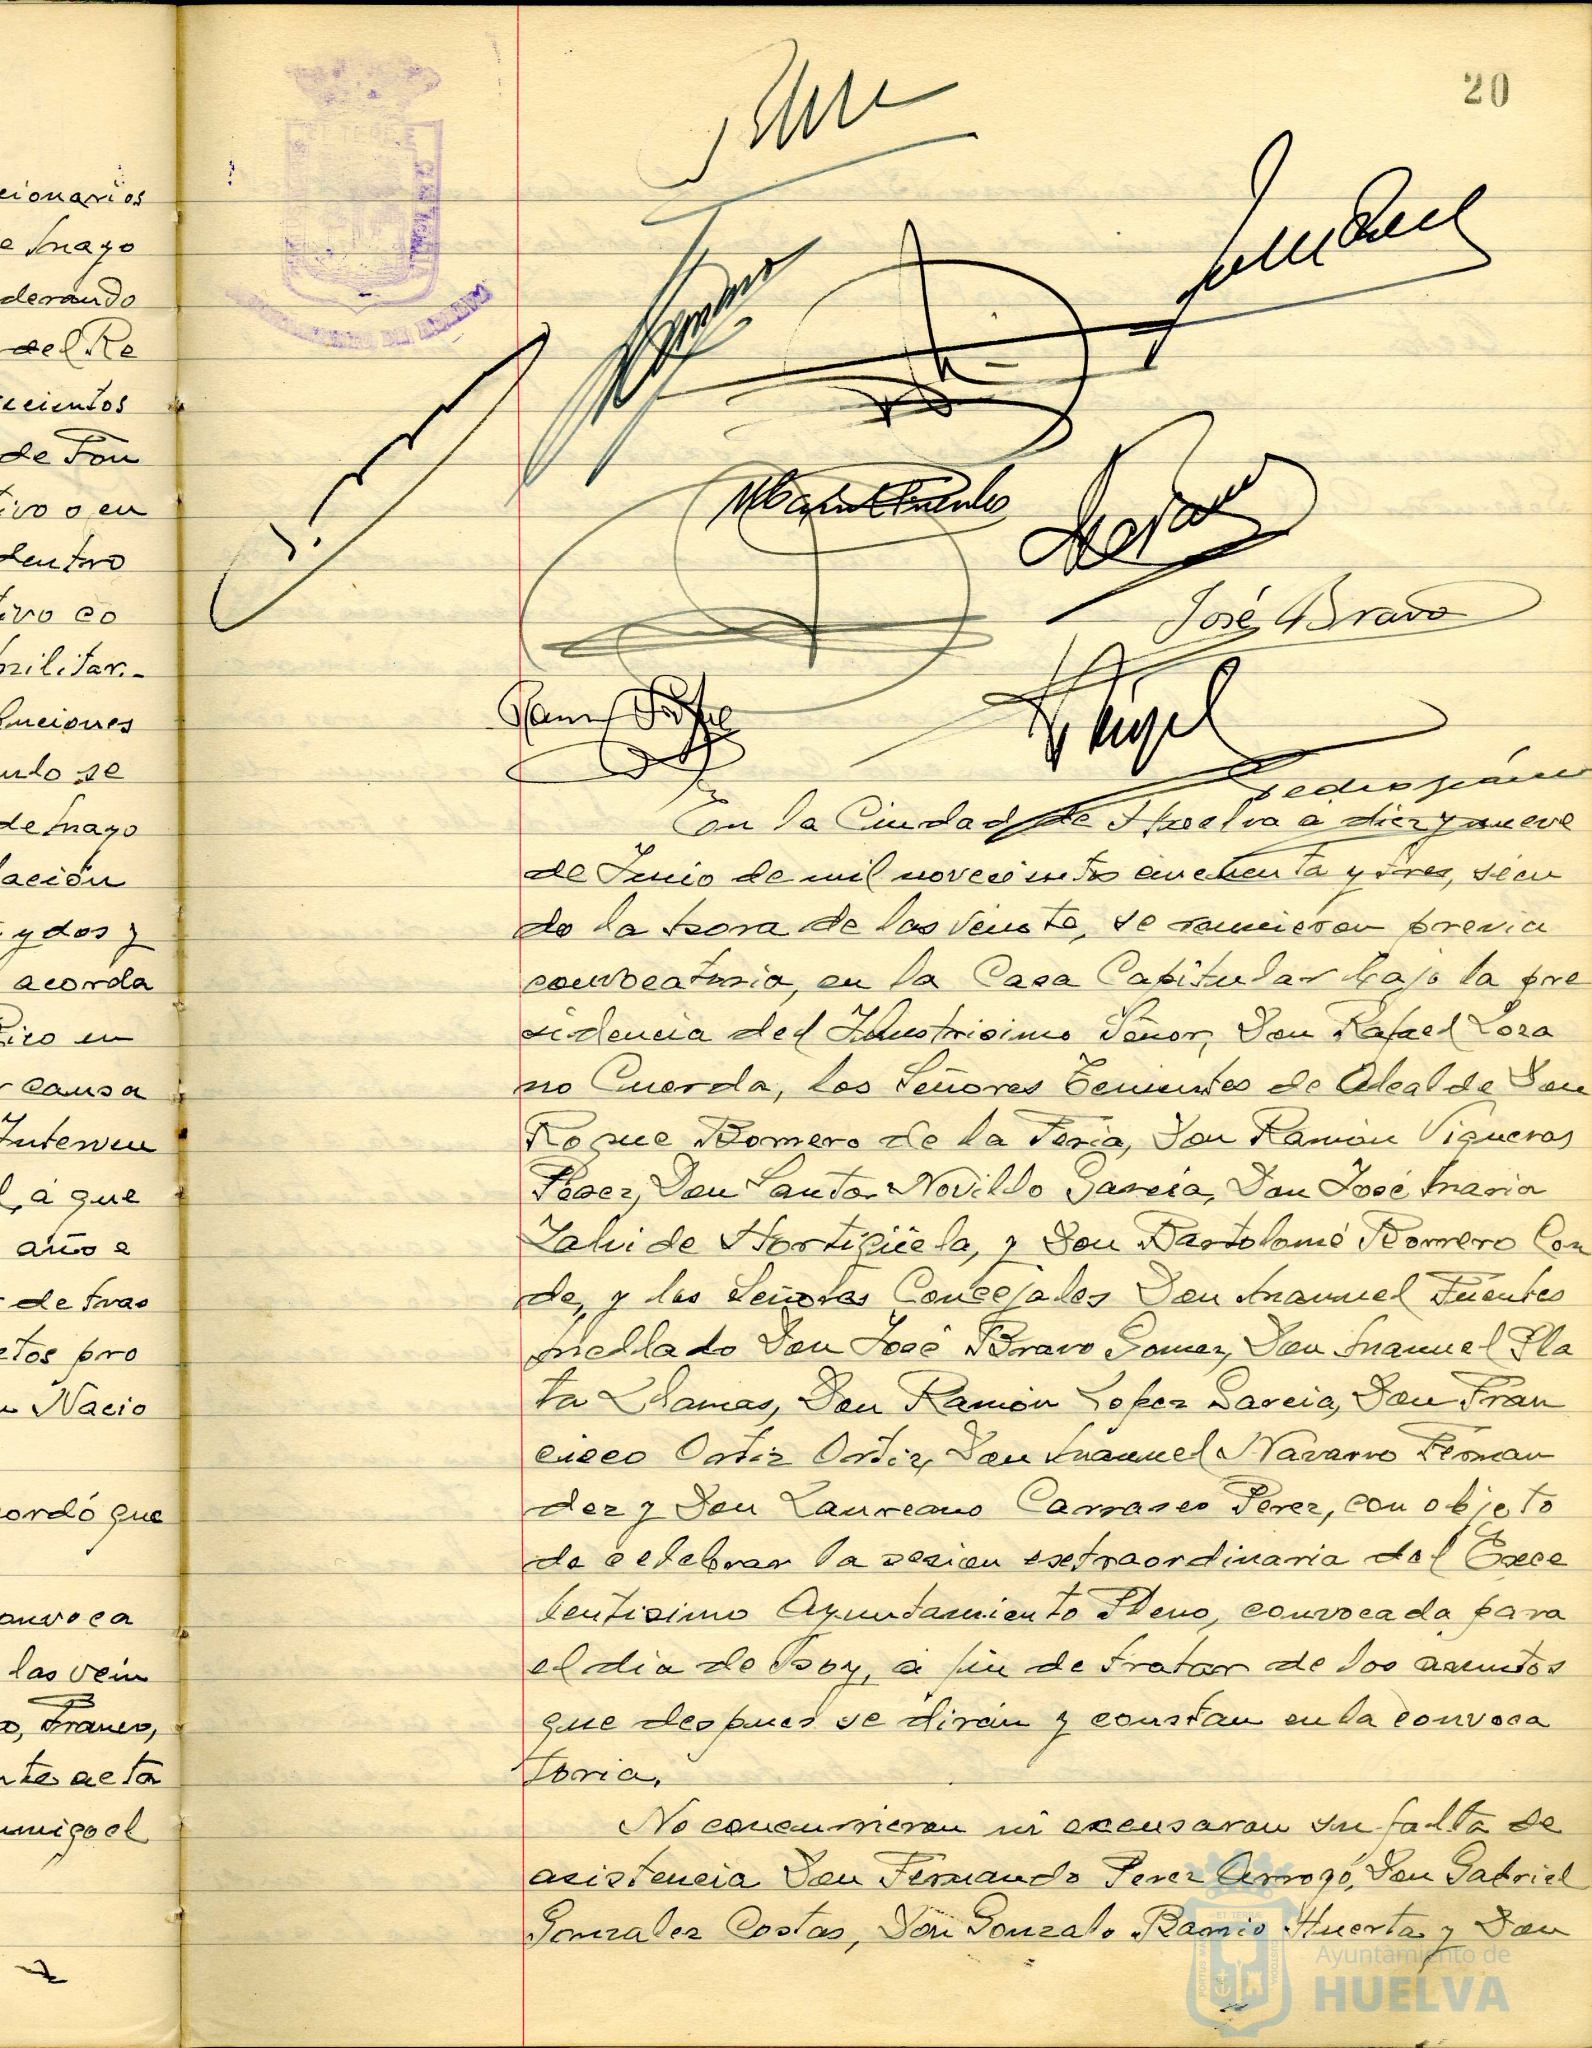 20
cionarios
e mayo
derando
del Re
scientos
de Fon
tivo o en
dentro
tivo co
militar.-
luciones
ando se
de mayo
lación
y dos y
acorda
Rico en
r causa
Interven
l, a que
año e
de tras
etos pro
Nacio
cordó que
convoca
las vein
Franco,
nte acta
José Bravo
En la Ciudad de Huelva a diez y nueve
de Junio de mil novecientos cincuenta y tres, sien
do la hora de las veinte, se reunieron previa
convocatoria, en la Casa Capitular bajo la pre
sidencia del Ilustrisimo Señor, Don Rafael Loza
no Cuerda, los Señores Tenientes de Alcalde Don
Roque Romero de la Feria, Don Ramón Vigueras
Perez, Don Santos Novillo Garcia, Don José Maria
Zalvide Hortigüela, y Don Bartolomé Romero Con
de, y los Señores Concejales Don Manuel Fuentes
Mellado Don José Bravo Gomez, Don Manuel Pla
ta Llamas, Don Ramón Lopez Garcia, Don Fran
cisco Ortiz Ortiz, Don Manuel Navarro Fernan
dez y Don Laureano Carrasco Perez, con objeto
de celebrar la sesion extraordinaria del Exce
lentisimo Ayuntamiento Pleno, convocada para
el dia de hoy, a fin de tratar de los asuntos
que despues se dirán y constan en la convoca
toria.
No concurrieron ni excusaron su falta de
asistencia Don Fernando Perez Arroyo, Don Gabriel
Gonzalez Costas, Don Gonzalo Ramio Huerta y Don
Ayuntamiento de
HUELVA